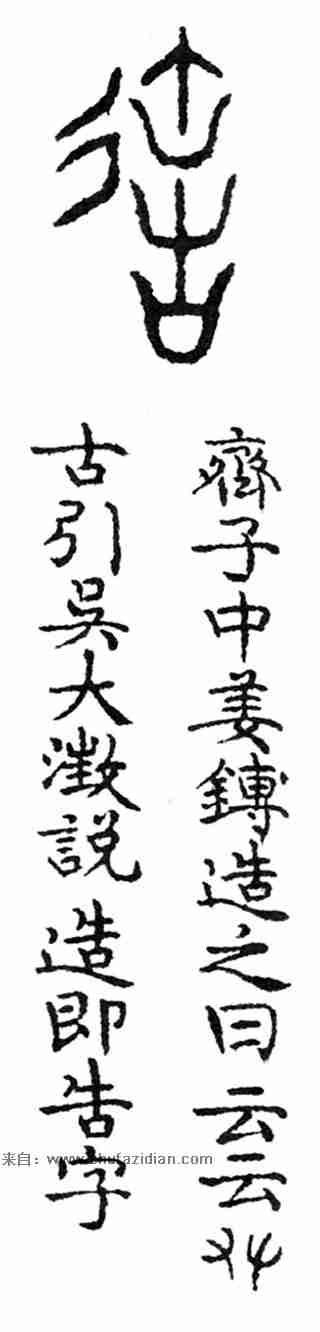 造
齊子中姜鎛造之曰云云
古引吳大澂說造即告字
来自：www.shufazidian.com